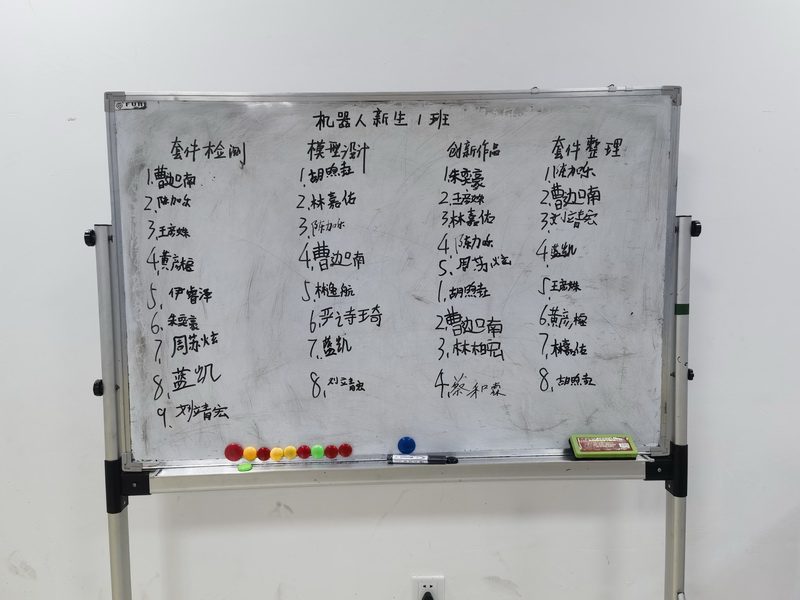 机器人新生1班
套件检测
1.曹迦南
2.陈加乐
3.王彦姝
4.黄彦桓
5.伊睿泽
6.朱奕豪
7.周苏炫
8.蓝凯
9.刘靖宏
模型设计
1.胡照赶
2.林嘉佑
3.陈加乐
4.曹迦南
5.林逸航
6.严诗琦
7.蓝凯
8.刘靖宏
创新作品
1.朱奕豪
2.王彦姝
3.林嘉佑
4.陈加乐
5.周苏炫
1.胡照赶
2.曹迦南
3.林柏宏
4.蔡和森
套件整理
1.陈加乐
2.曹迦南
3.刘靖宏
4.蓝凯
5.王彦姝
6.黄彦桓
7.林嘉佑
8.胡照赶